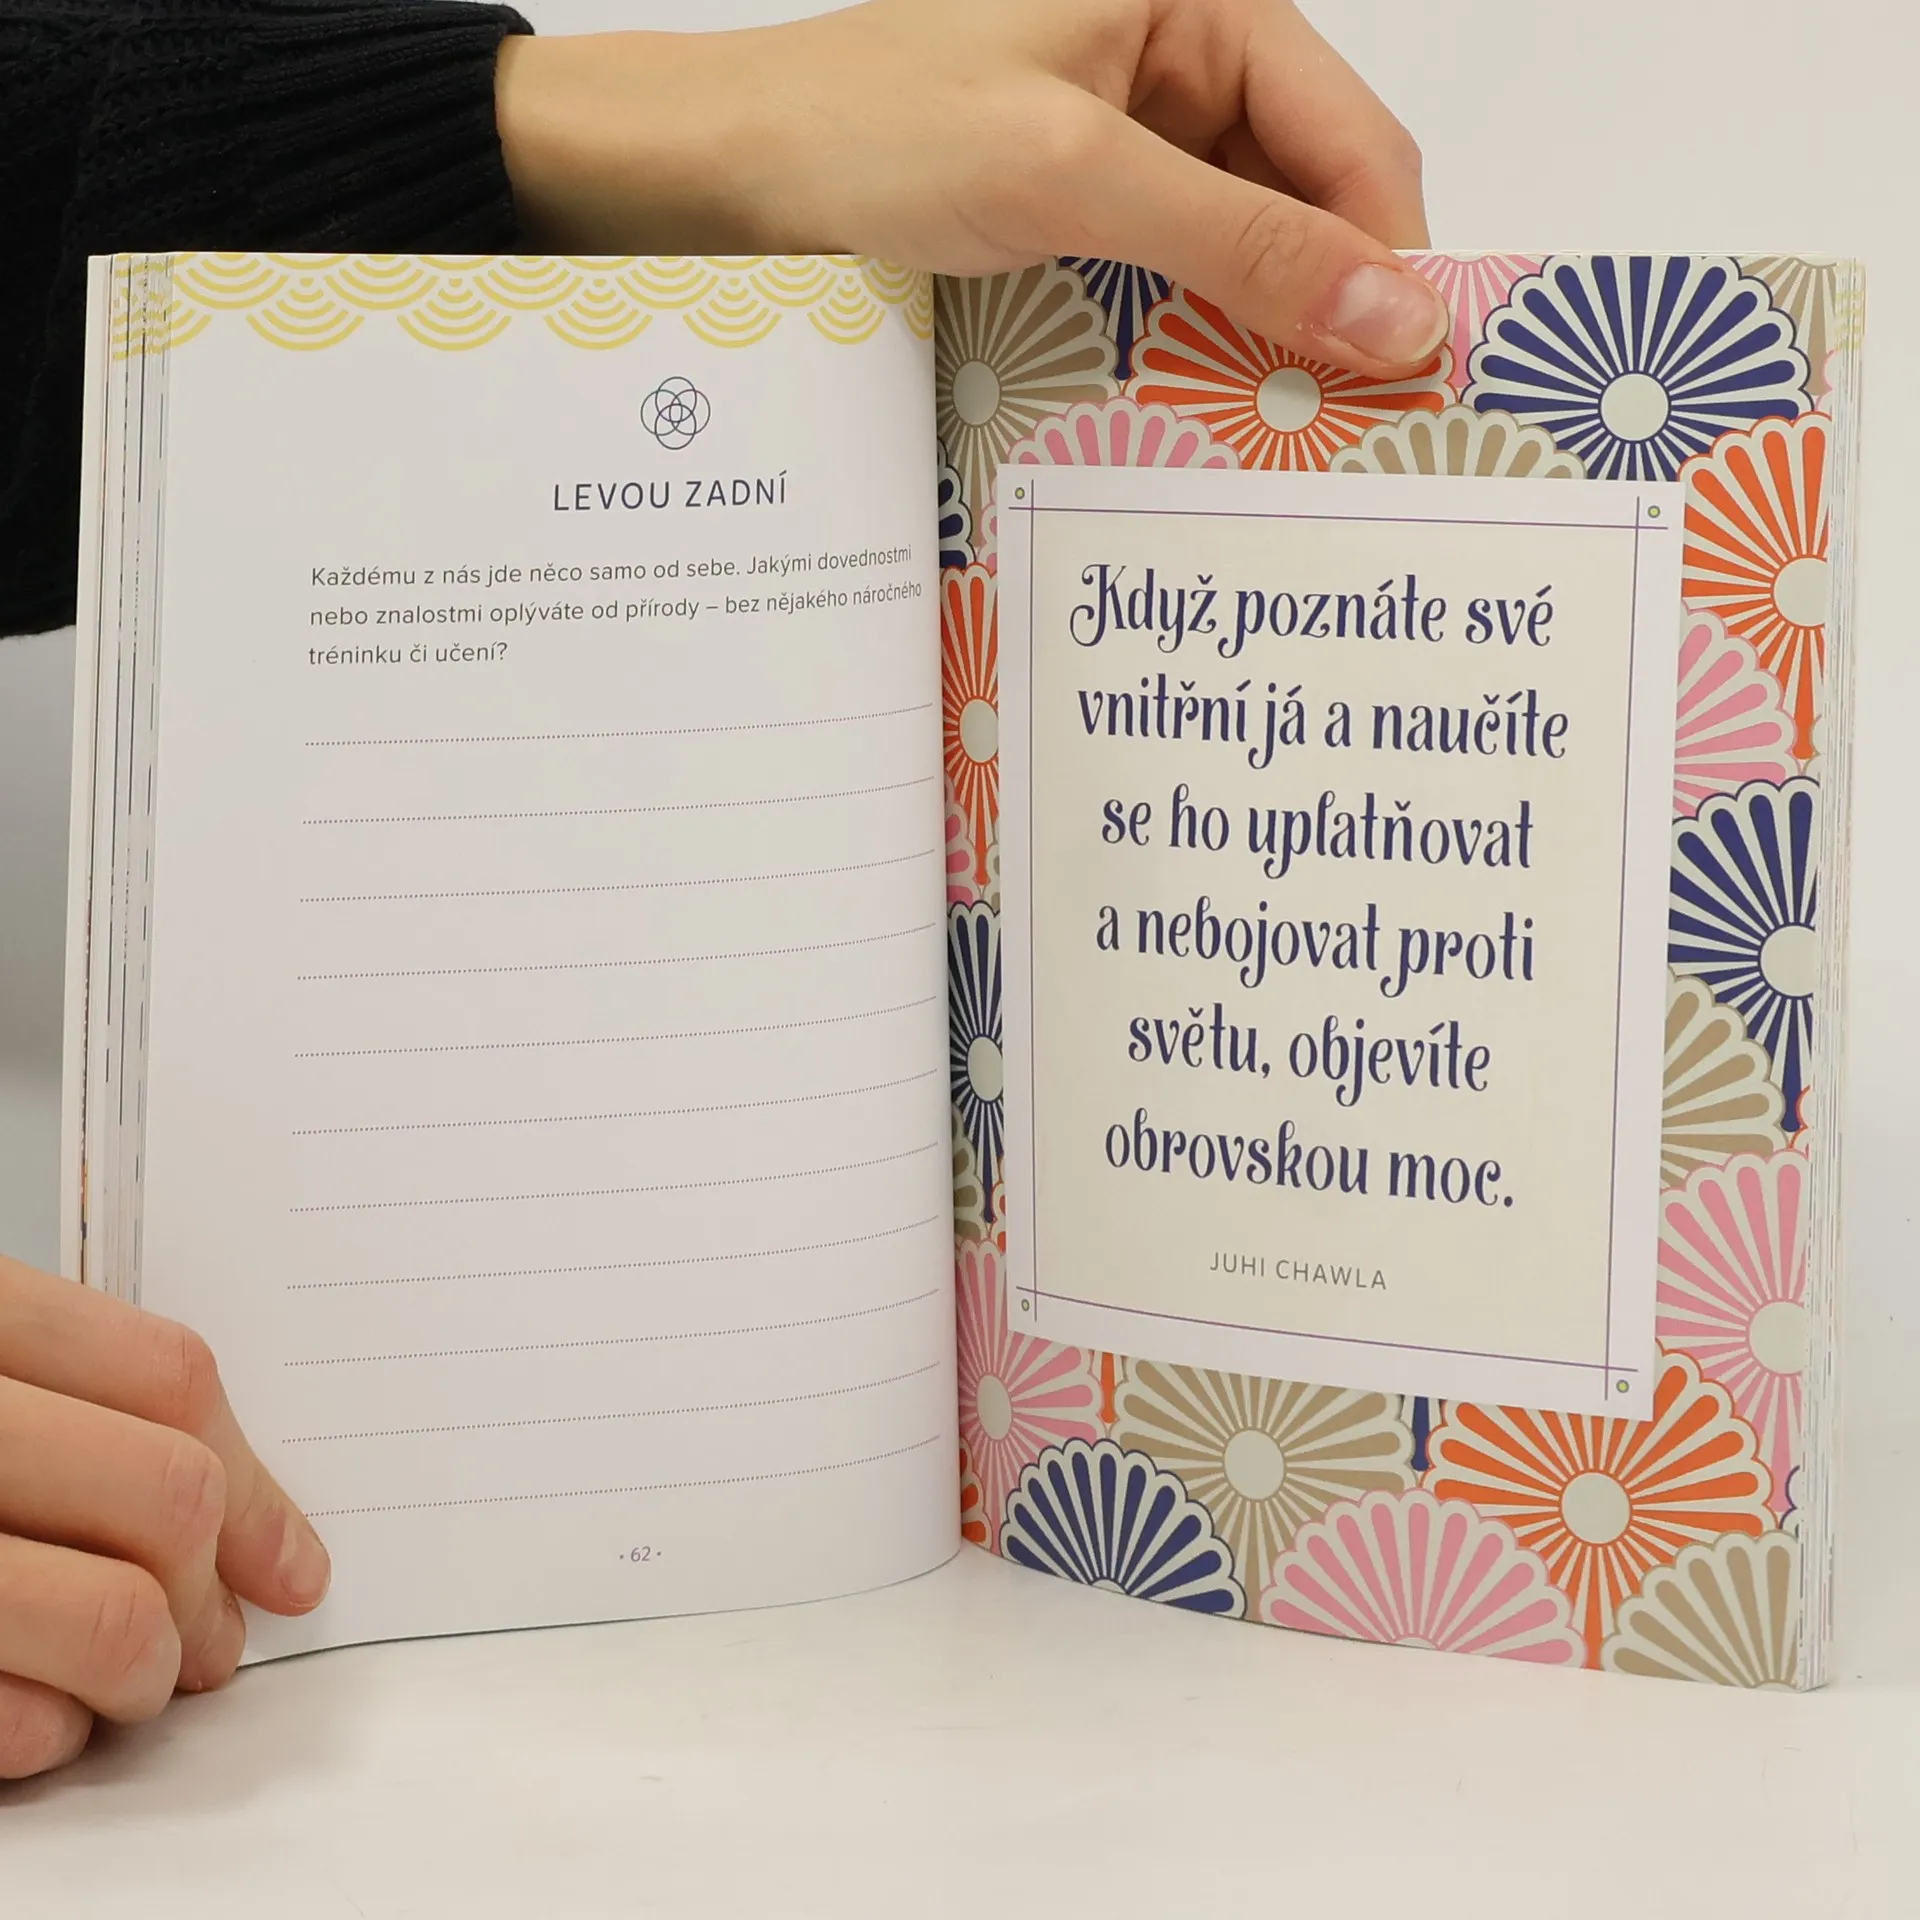 LEVOU ZADNÍ
Každému z nás jde něco samo od sebe. Jakými dovednostmi
nebo znalostmi oplýváte od přírody – bez nějakého náročného
tréninku či učení?
• 62 •
Když poznáte své
vnitřní já a naučíte
se ho uplatňovat
a nebojovat proti
světu, objevíte
obrovskou moc.
JUHI CHAWLA